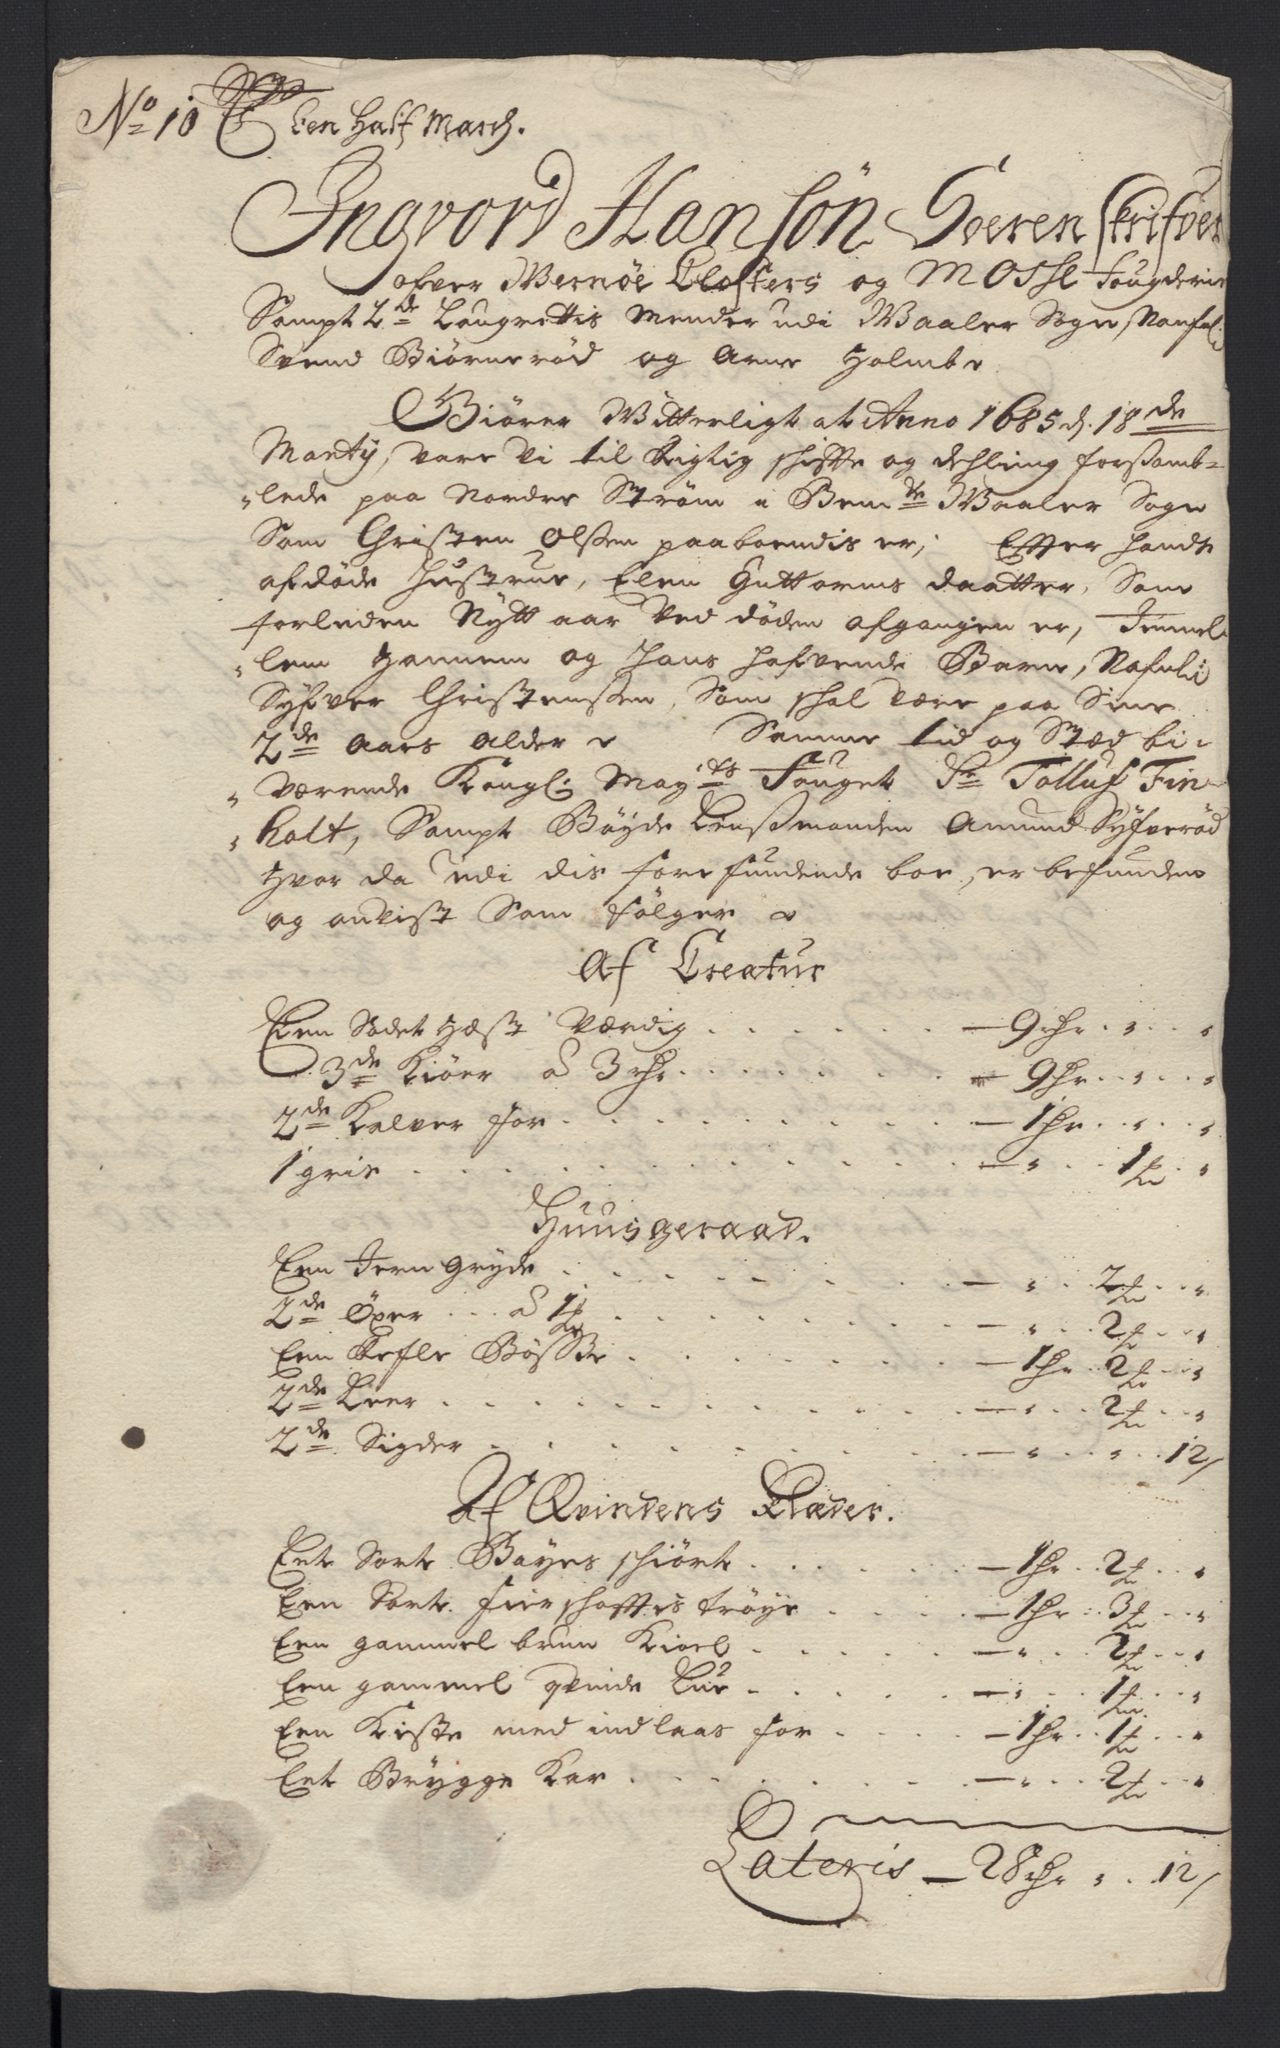 No 10 Een Half March.
Ingvord Hansøn Soeren skrifver
ofver Wernøe Closters og Mosse fougderie
Sampt 2de Laugrettis Mender udi Waaler Sogn, Nafnl:
Svend Biørnerød og Arne Holmb
Giører Witterligt at Anno 1685 d. 18de
Marty, vare Vi til Rigtig schiffte og dehling forsamb-
lede paa Nordre Strøm i Bemte Waaler Sogn
Som Christen Olssen paaboendis er, Effter hands
afdøde Hustrue, Elen Guttorms daatter, Som
forleden Nytt aar Ved døden afgangen er, Immel-
lem Hannem og hans hafvende Barn, Nafnlig
Syfver Christenssen, Som schal være paa Sine
2de aars alder Samme tid og Stæd bi-
værende Kongl: Mayts Fouget Sr Tolluf Fin-
holt, Sampt Bøyde Lenssmanden Amund Syfverød
Hvor da udi dis forefundende boe, er befunden
og anvist Som følger
Af Creatur
Een Sodet Hæst Værdig — 9 rdr
3de Kiøer á 3 rdr — 9 rdr
2de Kalver for — 1 rdr
1 gris — 1 ort
Huusgeraad.
Een Jern Gryde — 2 ort
2de Øxer á 1 ort — 2 ort
Een Refle Bøsse — 1 rdr 2 ort
2de Leer — 2 ort
2de Sigder — 12 s
Af Qvindens Klæder.
Eet Sort Bayes schiørt — 1 rdr 2 ort
Een Sort fierschafftis trøye — 1 rdr 3 ort
Een gammel brun Kioel — 2 ort
Een gammel qvinde Lue — 1 ort
Een Kiste med indlaas for — 1 rdr 1 ort
Eet Brygge Kar — 2 ort
Lateris — 28 rdr 12 s